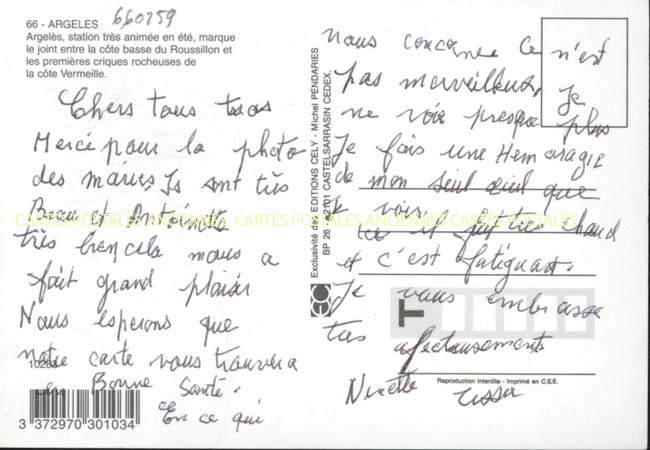 66 - ARGELES
660259
Argelès, station très animée en été, marque
le joint entre la côte basse du Roussillon et
les premières criques rocheuses de
la côte Vermeille.
Chers tous tous
Merci pour la photo
des mariés Ils sont très
Beau et
très bien cela nous a
fait grand plaisir
Nous esperons que
notre carte vous trouvera
en Bonne Santé.
En ce qui
10293
3 372970 301034
Exclusivité des EDITIONS CELY - Michel PENDARIES
BP 26 - 82101 CASTELSARRASIN CEDEX.
nous concerne ce n'est
pas merveilleux, Je
ne voie presque plus
Je fais une Hemoragie
de mon seul œil que
je vois
il fait très chaud
et c'est fatiguant.
Je vous embrasse
tres afectueusement
Ninette
Reproduction Interdite - Imprimé en C.E.E.
CARTES POSTALES ANCIENNES CARTES POSTALES ANCIENNES CARTES POSTALES